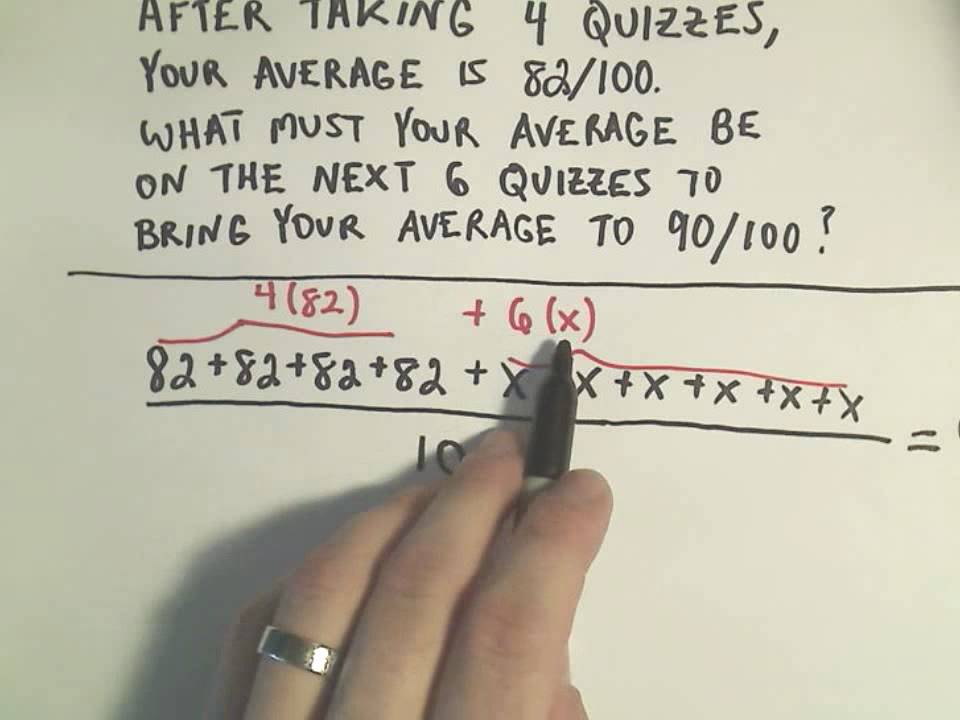 AFTER TAKING 4 QUIZZES,
YOUR AVERAGE IS 82/100.
WHAT MUST YOUR AVERAGE BE
ON THE NEXT 6 QUIZZES TO
BRING YOUR AVERAGE TO 90/100?
4(82) + 6(x)
82+82+82+82 + x x +x +x +x +x
10 =